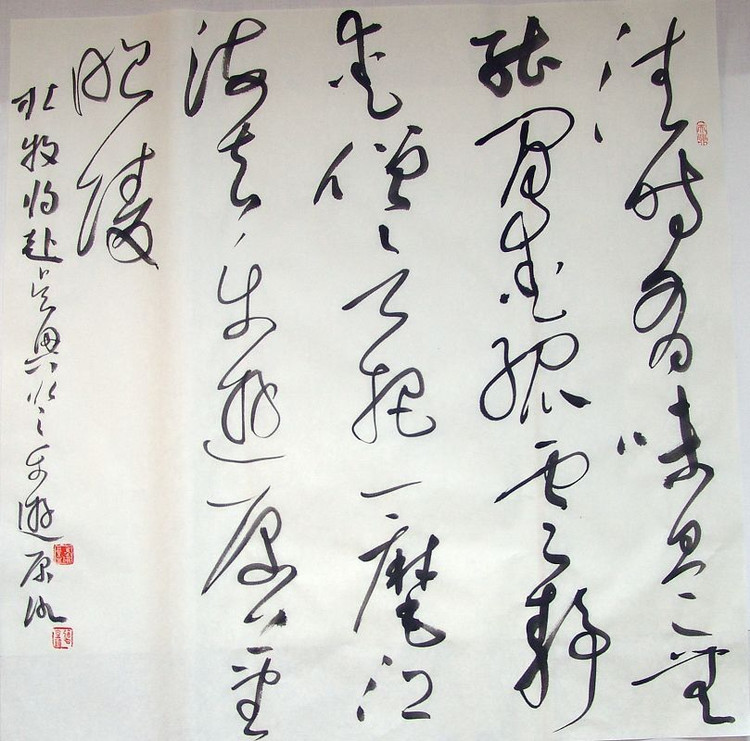 清時有味是無
能閒愛孤雲静
愛僧欲把一麾江
海去樂遊原上望
昭陵
杜牧将赴吴興登樂遊原